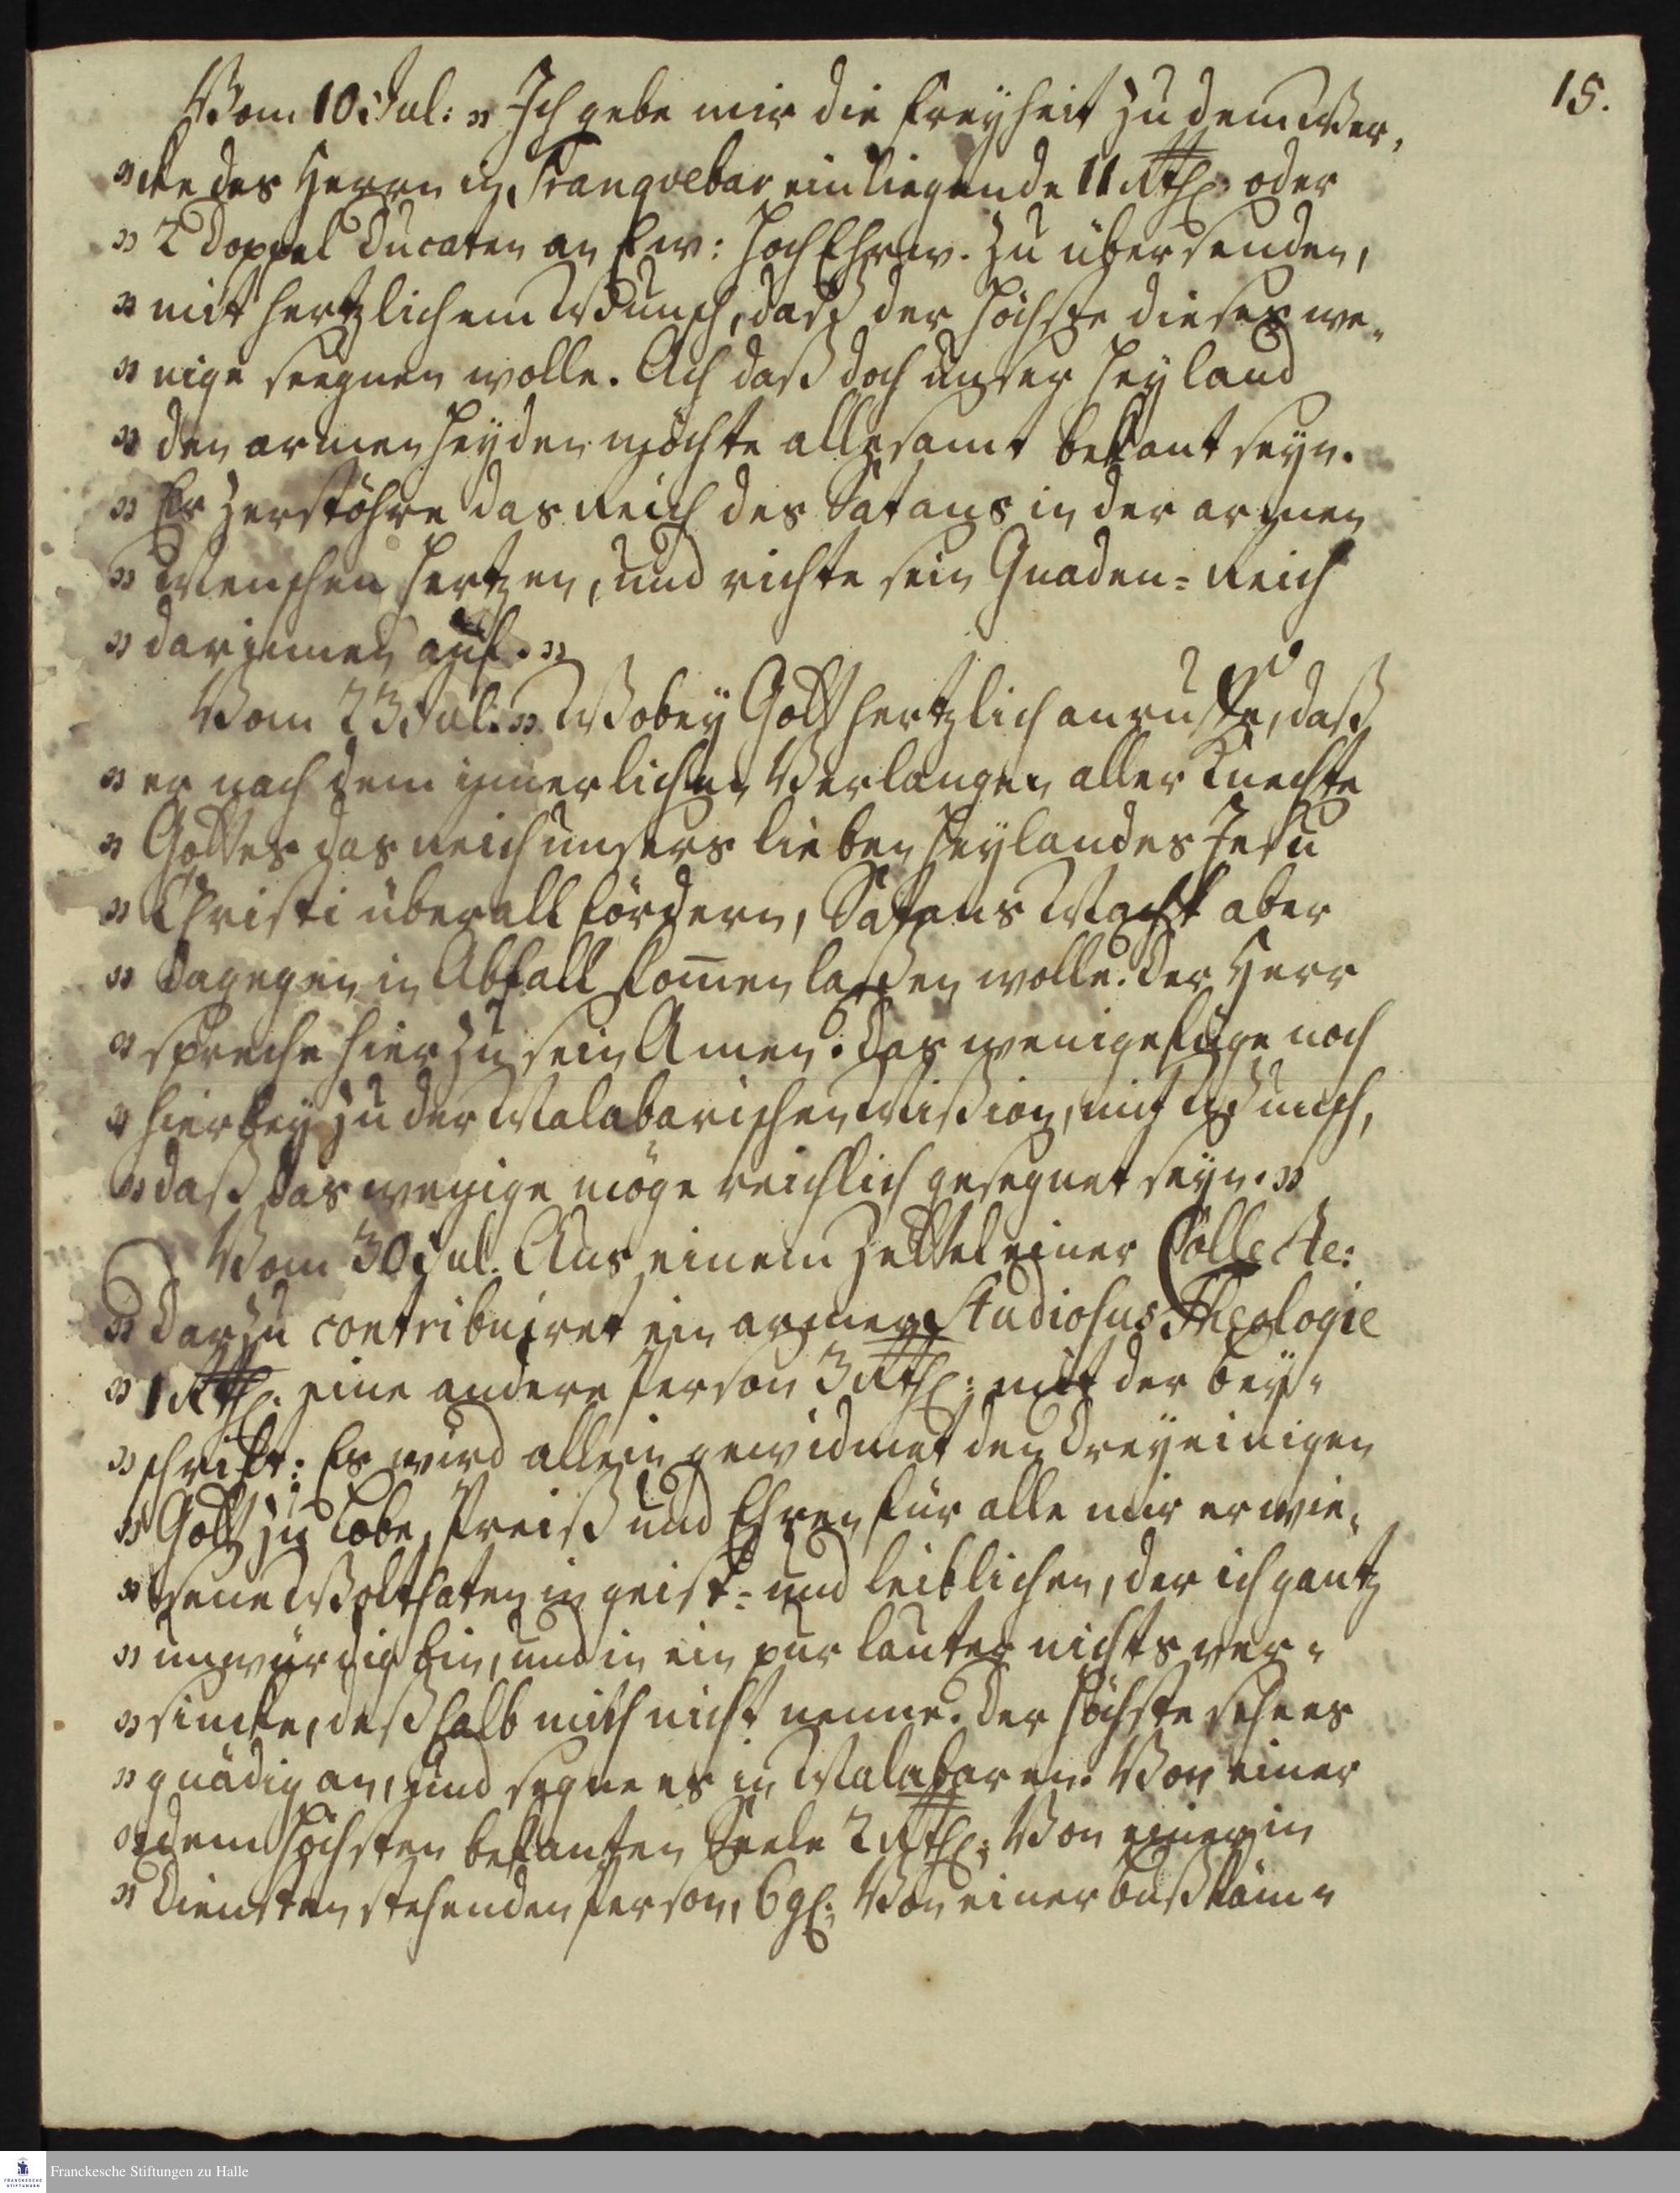 15.
Vom 10 Jul: » Ich gebe mir die Freyheit zu dem Wer„
» cke des Herrn in Tranqvebar einliegende 11 Rthl: oder
» 2 Doppel Ducaten an Ew: HochEhrw. zu übersenden,
» mit hertzlichem Wunsch, daß der Höchste dieses we„
» nige seegnen wolle. Ach daß doch unser Heyland
» den armen Heyden möchte allesamt bekant seyn.
» Er zerstöhre das Reich des Satans in der armen
» Menschen Hertzen, und richte sein Gnaden=Reich
» darinnen auf. »
Vom 23 Jul: » Wobey Gott hertzlich anruffe, daß
» er nach dem innerlichen Verlangen aller Knechte
» Gottes das Reich unsers lieben Heylandes Jesu
» Christi überall fördern, Satans Macht aber
» dagegen in Abfall kom̄en laßen wolle. Der Herr
» spreche hierzu sein Amen. Das wenige füge noch
» hierbey zu der Malabarischen Mißion, mit Wunsch,
» daß das wenige möge reichlich gesegnet seyn. »
Vom 30 Jul. Aus einem Zettel einer Collecte:
» Darzu contribuiret ein armer Studiosus Theologie
» 1 Rthl. eine andere Person 3 Rthl: mit der Bey„
» schrift: Es wird allein gewidmet den Dreyeinigen
» Gott zu Lobe, Preiß und Ehren für alle mir erwie„
» sene Wolthaten in geist= und leiblichen, der ich gantz
» unwürdig bin, und in ein pur lauter nichts ver„
» sincke, deßhalb mich nicht nenne. Der Höchste sehe es
» gnädig an, und segne es in Malabaren. Von einer
» dem Höchsten bekanten Seele 2 Rthl: Von einer in
» Diensten stehenden Person, 6 gl: Von einer
Franckesche Stiftungen zu Halle
FRANCKESCHE
STIFTUNGEN